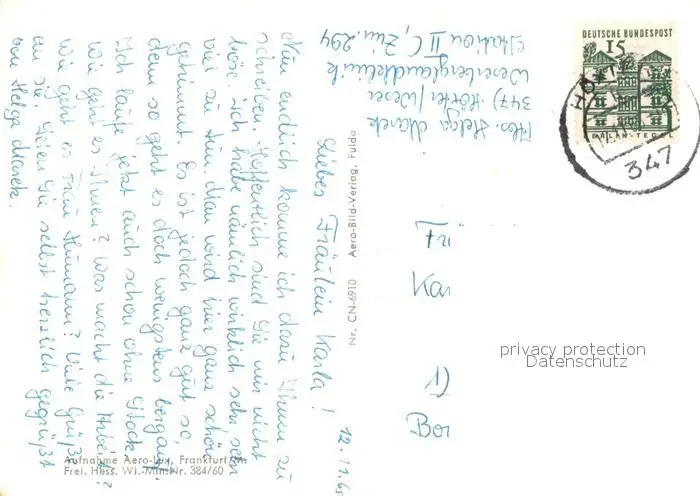 12.11.65
Liebes Fräulein Karla!
Nun endlich komme ich dazu Ihnen zu
schreiben. Hoffentlich sind Sie mir nicht
böse. Ich habe nämlich wirklich sehr, sehr
viel zu tun. Man wird hier ganz schön
getrimmt. Es ist jedoch ganz gut so,
denn so geht es doch wenigstens bergauf.
Ich laufe jetzt auch schon ohne Stock.
Wie geht es Ihnen? Was macht die Arbeit?
Wie geht es Frau Humann? Viele Grüße
an sie. Seien Sie selbst herzlich gegrüßt
von Helga Marek.
Abs. Helga Marek
347) Höxter/Weser
Weserberglandklinik
Station II C, Zim. 294
Nr. CN-6910 Aero-Bild-Verlag, Fulda
Aufnahme Aero-Lux, Frankfurt/M.
Frei. Hess. Wi.-Min. Nr. 384/60
DEUTSCHE BUNDESPOST
15
TEGEL
HÖXTER
347
Kar
Bor
privacy protection
Datenschutz